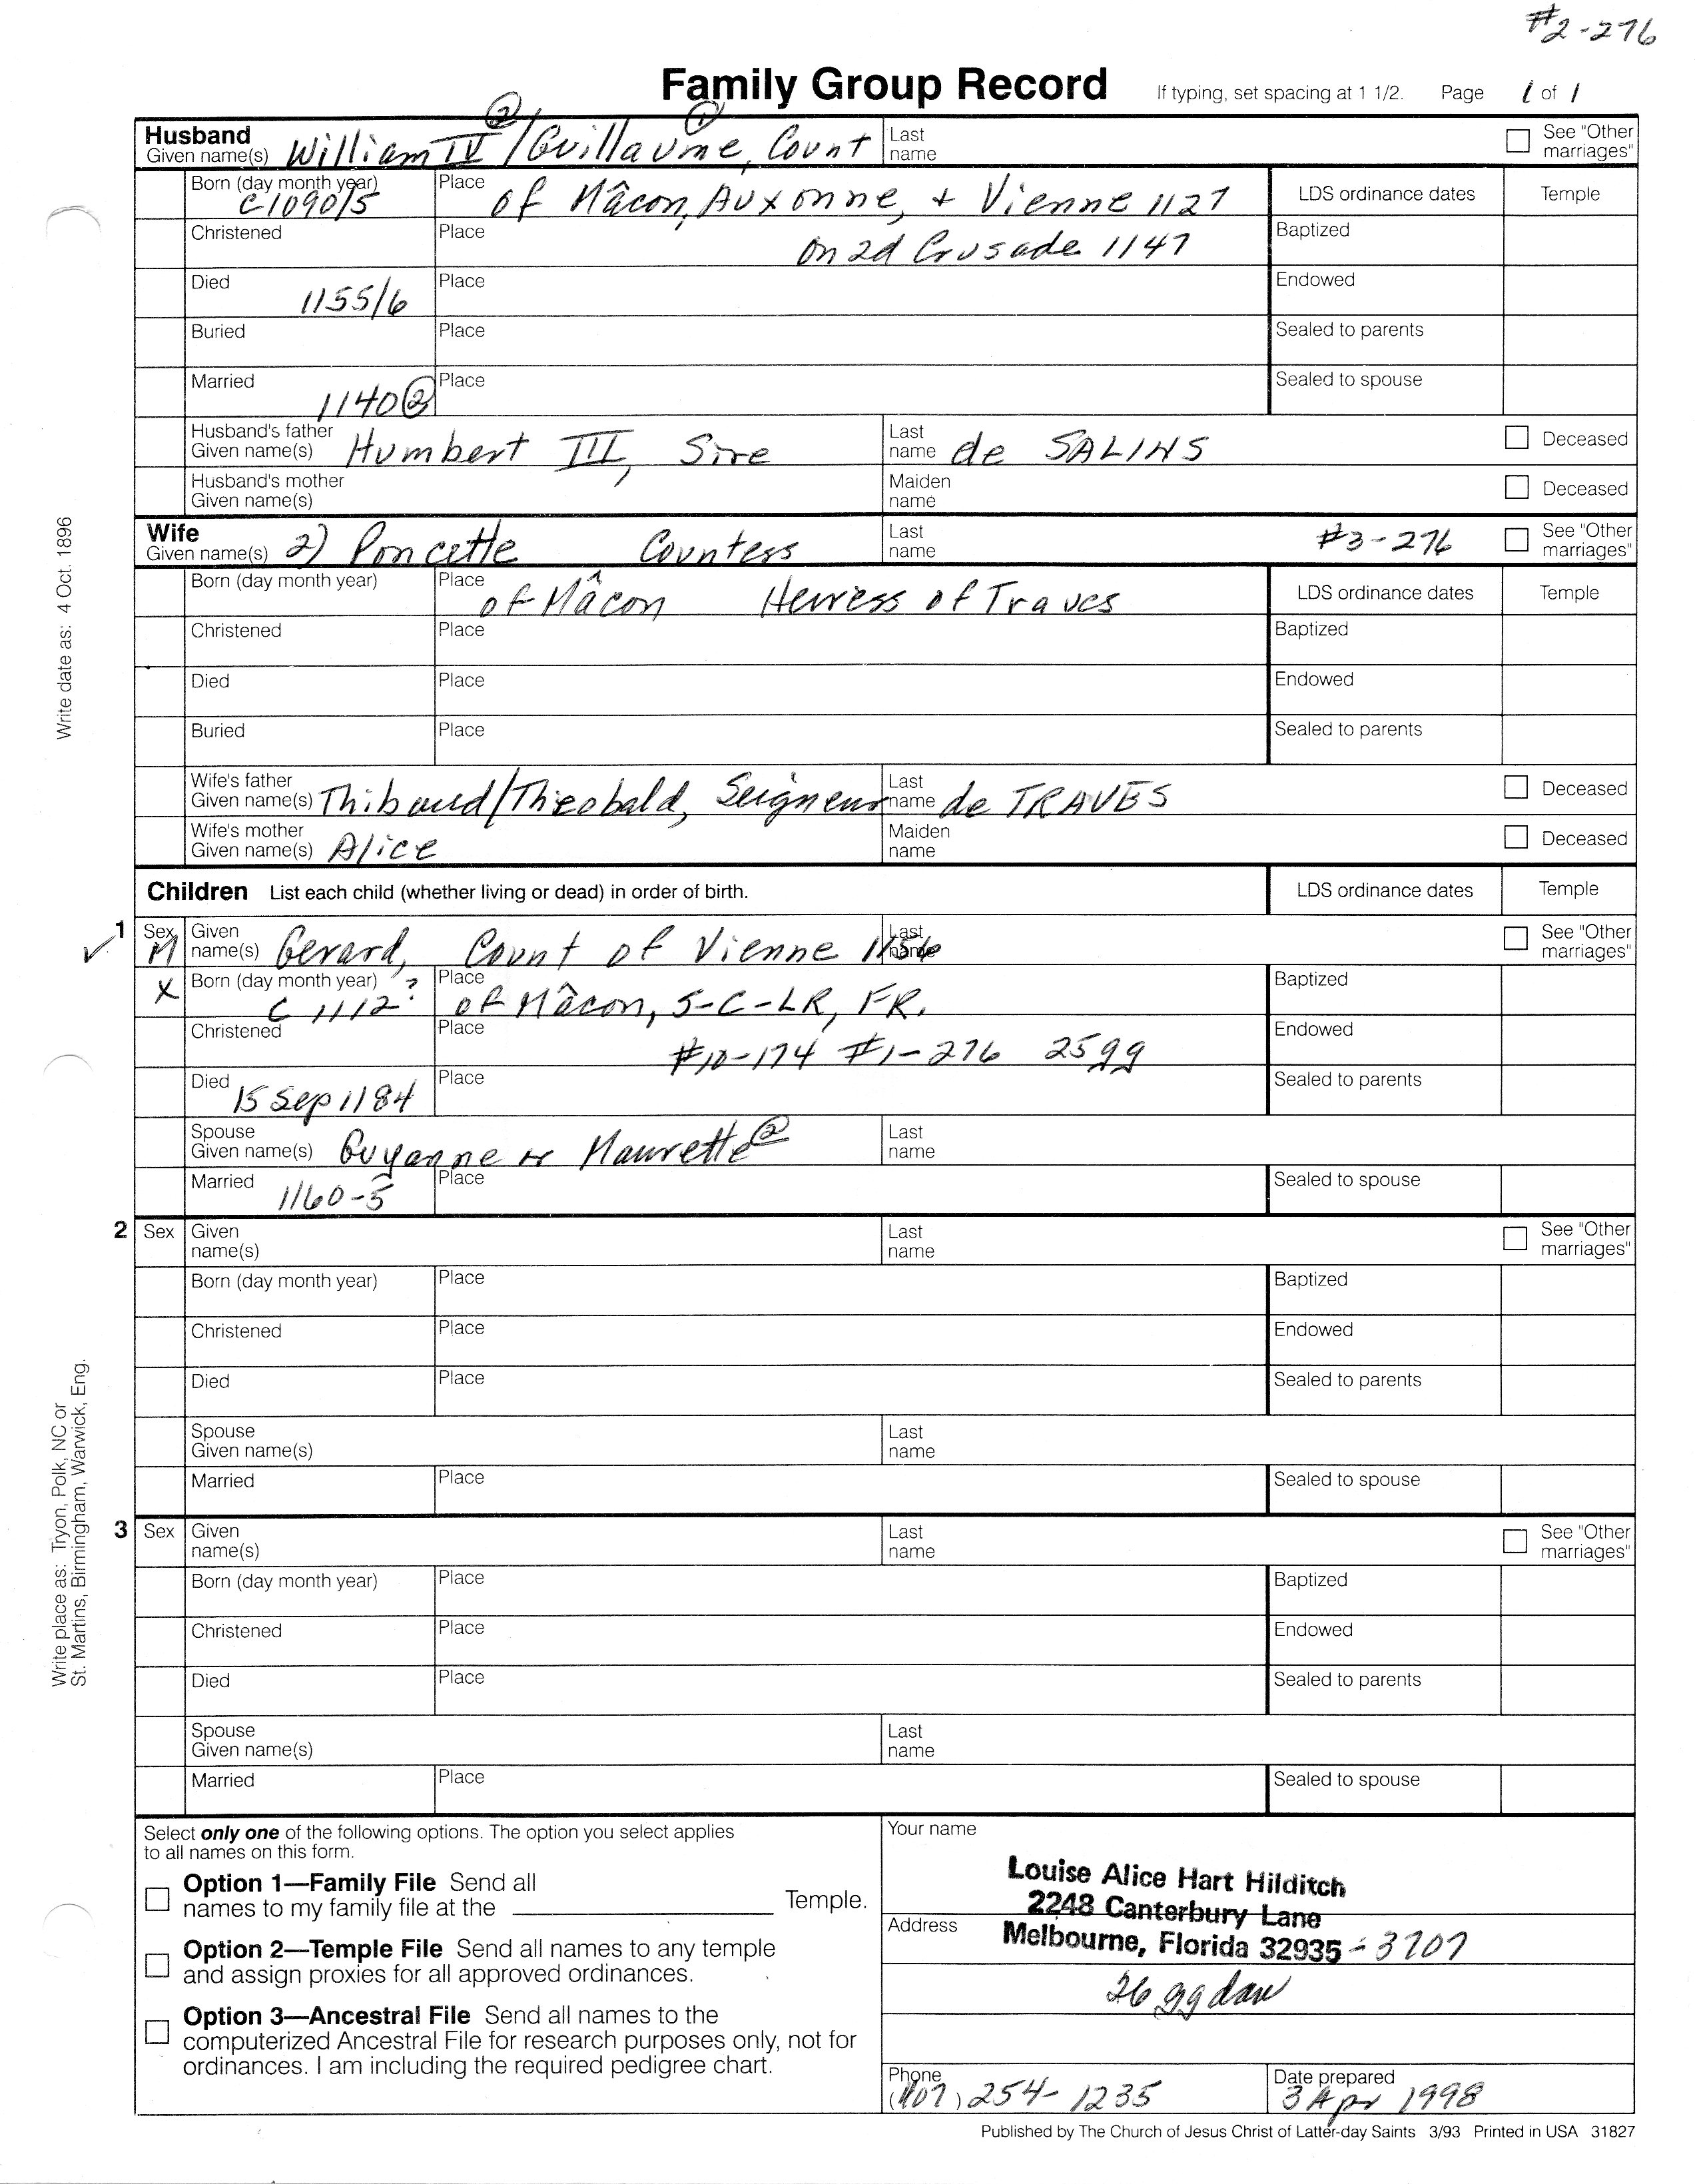 #2-276
Family Group Record If typing, set spacing at 1 1/2. Page 1 of 1
② ①
Husband
Given name(s) William IV / Guillaume, Count Last name See "Other marriages"
Born (day month year) C1090/5 Place of Mâcon, Auxonne, + Vienne 1127 LDS ordinance dates Temple
Christened Place on 2d Crusade 1147 Baptized
Died 1155/6 Place Endowed
Buried Place Sealed to parents
Married 1140 ② Place Sealed to spouse
Husband's father Given name(s) Humbert III, Sire Last name de SALINS Deceased
Husband's mother Given name(s) Maiden name Deceased
Wife
Given name(s) 2) Poncette Countess Last name #3-276 See "Other marriages"
Born (day month year) Place of Mâcon Heiress of Traves LDS ordinance dates Temple
Christened Place Baptized
Died Place Endowed
Buried Place Sealed to parents
Wife's father Given name(s) Thibaud/Theobald, Seigneur Last name de TRAVES Deceased
Wife's mother Given name(s) Alice Maiden name Deceased
Children List each child (whether living or dead) in order of birth. LDS ordinance dates Temple
1 Sex M Given name(s) Gerard, Count of Vienne 1156 Last name See "Other marriages"
X Born (day month year) C 1112? Place of Mâcon, S-C-LR, FR. Baptized
Christened Place #10-174 #1-276 25gg Endowed
Died 15 Sep 1184 Place Sealed to parents
Spouse Given name(s) Guyanne or Maurette ② Last name
Married 1160-5 Place Sealed to spouse
2 Sex Given name(s) Last name See "Other marriages"
Born (day month year) Place Baptized
Christened Place Endowed
Died Place Sealed to parents
Spouse Given name(s) Last name
Married Place Sealed to spouse
3 Sex Given name(s) Last name See "Other marriages"
Born (day month year) Place Baptized
Christened Place Endowed
Died Place Sealed to parents
Spouse Given name(s) Last name
Married Place Sealed to spouse
Write date as: 4 Oct. 1896
Write place as: Tryon, Polk, NC or
St. Martins, Birmingham, Warwick, Eng.
Select only one of the following options. The option you select applies
to all names on this form.
Option 1—Family File Send all
names to my family file at the Temple.
Option 2—Temple File Send all names to any temple
and assign proxies for all approved ordinances.
Option 3—Ancestral File Send all names to the
computerized Ancestral File for research purposes only, not for
ordinances. I am including the required pedigree chart.
Your name
Louise Alice Hart Hilditch
2248 Canterbury Lane
Address Melbourne, Florida 32935 - 3707
26 gg dau
Phone (407) 254-1235 Date prepared 3 Apr 1998
Published by The Church of Jesus Christ of Latter-day Saints 3/93 Printed in USA 31827